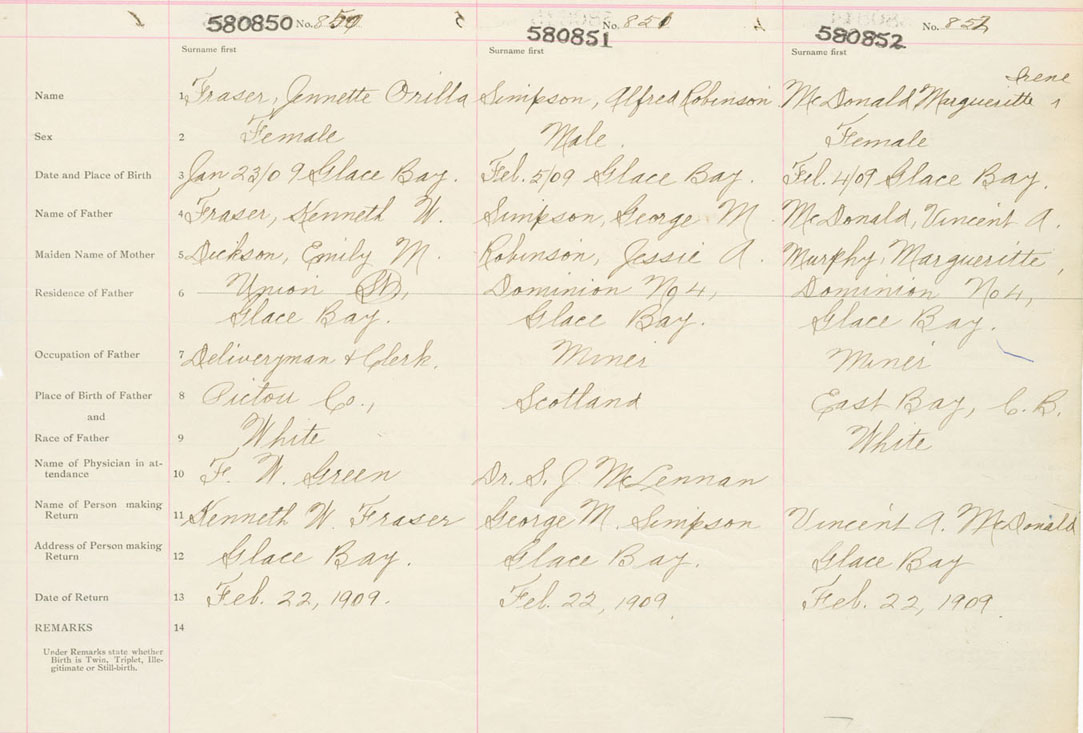 580850 No. 850 580851 No. 851 580852 No. 852
Surname first Surname first Surname first
Irene
Name 1 Fraser, Jennette Orilla Simpson, Alfred Robinson McDonald, Margueritte
Sex 2 Female Male. Female
Date and Place of Birth 3 Jan 23/09 Glace Bay. Feb. 5/09 Glace Bay. Feb. 4/09 Glace Bay.
Name of Father 4 Fraser, Kenneth W. Simpson, George M. McDonald, Vincent A.
Maiden Name of Mother 5 Dickson, Emily M. Robinson, Jessie A. Murphy, Margueritte,
Residence of Father 6 Union St, Dominion No 4, Dominion No 4,
Glace Bay. Glace Bay. Glace Bay.
Occupation of Father 7 Deliveryman & Clerk. Miner Miner
Place of Birth of Father 8 Pictou Co., Scotland East Bay, C. B.
and
Race of Father 9 White White
Name of Physician in at-
tendance 10 F. W. Green Dr. S. J. McLennan
Name of Person making
Return 11 Kenneth W. Fraser George M. Simpson Vincent A. McDonald
Address of Person making
Return 12 Glace Bay. Glace Bay. Glace Bay
Date of Return 13 Feb. 22, 1909. Feb. 22, 1909 Feb. 22, 1909
REMARKS 14
Under Remarks state whether
Birth is Twin, Triplet, Ille-
gitimate or Still-birth.